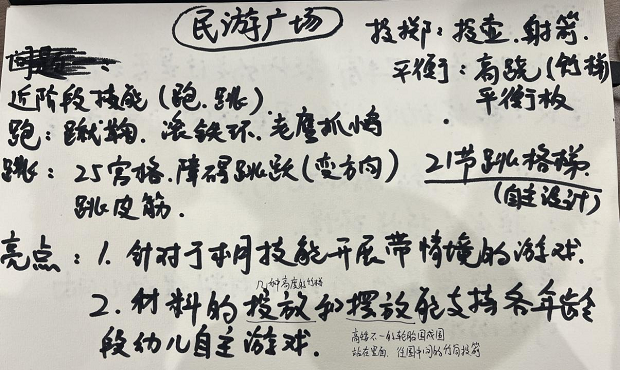 民游广场
投掷：投壶.射箭.
平衡：高跷(竹梯)
平衡板
近阶段技能(跑.跳).
跑：蹴鞠.滚铁环.老鹰抓小鸡
跳：25宫格.障碍跳跃(变方向)
跳皮筋.
21节跳格梯.
(自主设计)
亮点：1.针对于本月技能开展带情境的游戏.
几种高度的竹梯
2.材料的投放和摆放能支持各年龄
段幼儿自主游戏.
高矮不一的轮胎围成圆
站在里面,往圆中间的竹筒投箭